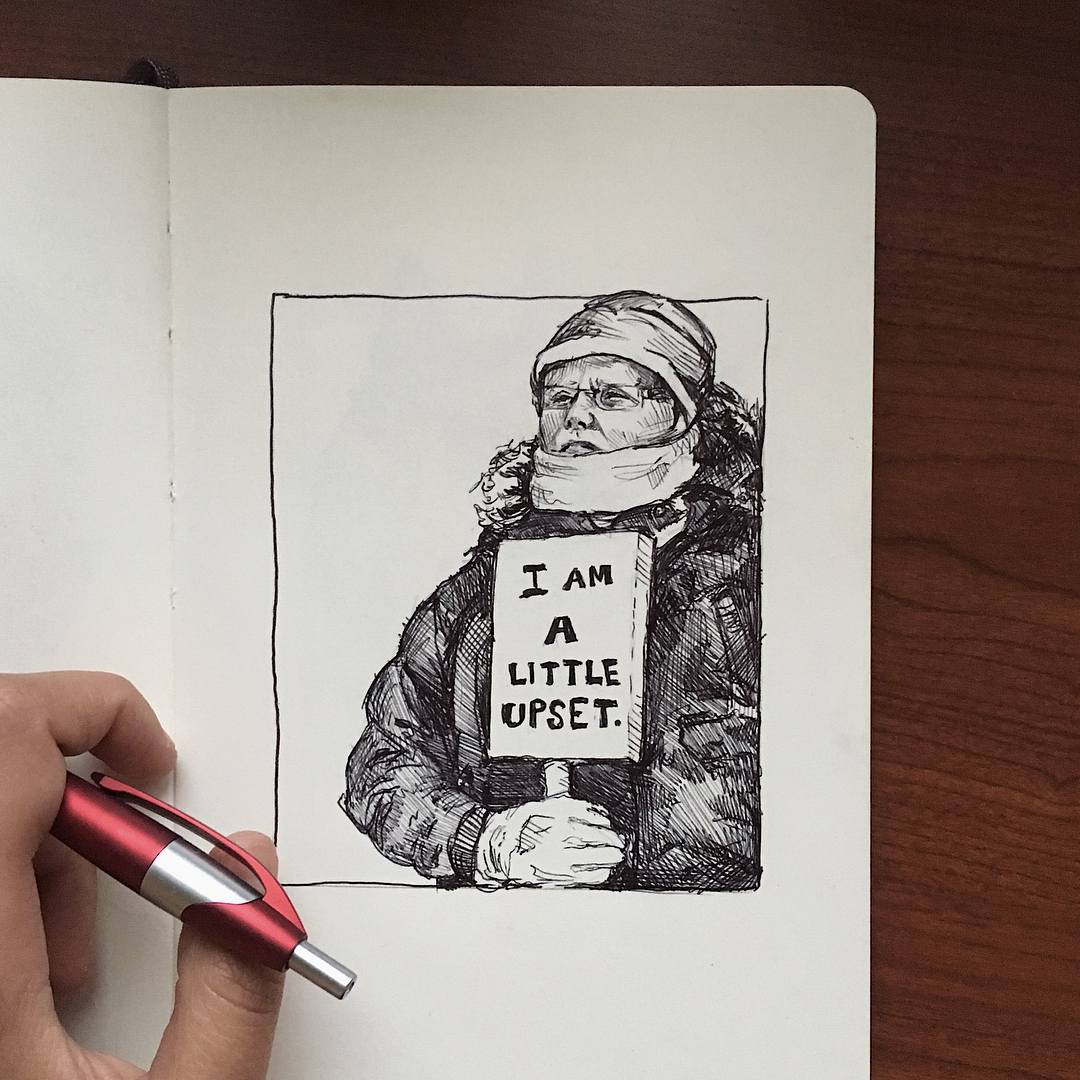 I AM
A
LITTLE
UPSET.